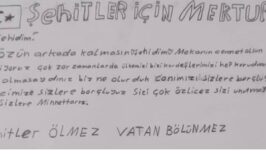 ŞEHİTLER İÇİN MEKTUP
Şehidim!
Gözün arkada kalmasın Şehidim! Mekanın cennet olsun
çok zor zamanlarda ülkemizi bizi bu değerlerimizi hep korudunuz
olmasaydınız biz ne olurduk canımızı sizlere borçluyuz
sizlere borçluyuz Sizi çok özlicez sizi unutmay
Sizlere Minnettarız.
Şehitler ÖLMEZ VATAN BÖLÜNMEZ